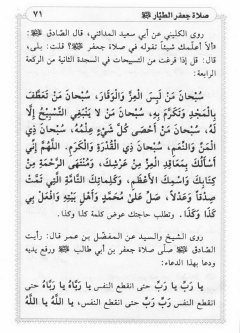 صلاة جعفر الطيّار ﷺ ٧١
روى الكليني عن أبي سعيد المدائني، قال: قال الصّادق ﷺ:
«ألا أعلّمك شيئاً تقوله في صلاة جعفر ﷺ»؟ قلت: بلى،
قال: قل إذا فرغت من التسبيحات في السجدة الثانية من الركعة
الرابعة:
سُبْحَانَ مَنْ لَبِسَ الْعِزَّ وَالْوَقَارَ، سُبْحَانَ مَنْ تَعَطَّفَ
بِالْمَجْدِ وَتَكَرَّمَ بِهِ، سُبْحَانَ مَنْ لَا يَنْبَغِي التَّسْبِيحُ إِلَّا
لَهُ، سُبْحَانَ مَنْ أَحْصَى كُلَّ شَيْءٍ عِلْمُهُ، سُبْحَانَ ذِي
الْمَنِّ وَالنِّعَمِ، سُبْحَانَ ذِي الْقُدْرَةِ وَالْكَرَمِ. اللَّهُمَّ إِنِّي
أَسْأَلُكَ بِمَعَاقِدِ الْعِزِّ مِنْ عَرْشِكَ، وَمُنْتَهَى الرَّحْمَةِ مِنْ
كِتَابِكَ وَاسْمِكَ الْأَعْظَمِ، وَكَلِمَاتِكَ التَّامَّةِ الَّتِي تَمَّتْ
صِدْقاً وَعَدْلاً، صَلِّ عَلَىٰ مُحَمَّدٍ وَأَهْلِ بَيْتِهِ وَافْعَلْ بِي
كَذَا وَكَذَا. وتطلب حاجتك عوض كلمة كذا وكذا.
وروى الشيخ والسيد عن المفضّل بن عمر قال: رأيت
الصادق ﷺ صلّى صلاة جعفر بن أبي طالب ﷺ ورفع يديه
ودعا بهذا الدعاء:
يَا رَبِّ يَا رَبِّ حتى انقطع النفس، يَا رَبَّاهُ يَا رَبَّاهُ حتى
انقطع النفس، رَبِّ رَبِّ حتى انقطع النفس، يا اللهُ يا اللهُ